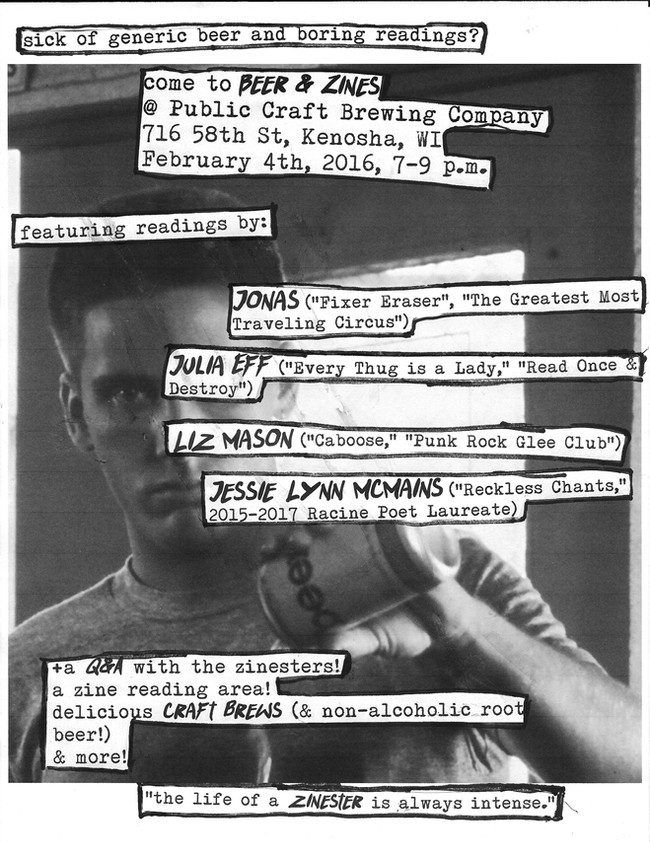 sick of generic beer and boring readings?
come to BEER & ZINES
@ Public Craft Brewing Company
716 58th St, Kenosha, WI
February 4th, 2016, 7-9 p.m.
featuring readings by:
JONAS ("Fixer Eraser", "The Greatest Most
Traveling Circus")
JULIA EFF ("Every Thug is a Lady," "Read Once &
Destroy")
LIZ MASON ("Caboose," "Punk Rock Glee Club")
JESSIE LYNN MCMAINS ("Reckless Chants,"
2015-2017 Racine Poet Laureate)
beer
+a Q&A with the zinesters!
a zine reading area!
delicious CRAFT BREWS (& non-alcoholic root
beer!)
& more!
"the life of a ZINESTER is always intense."